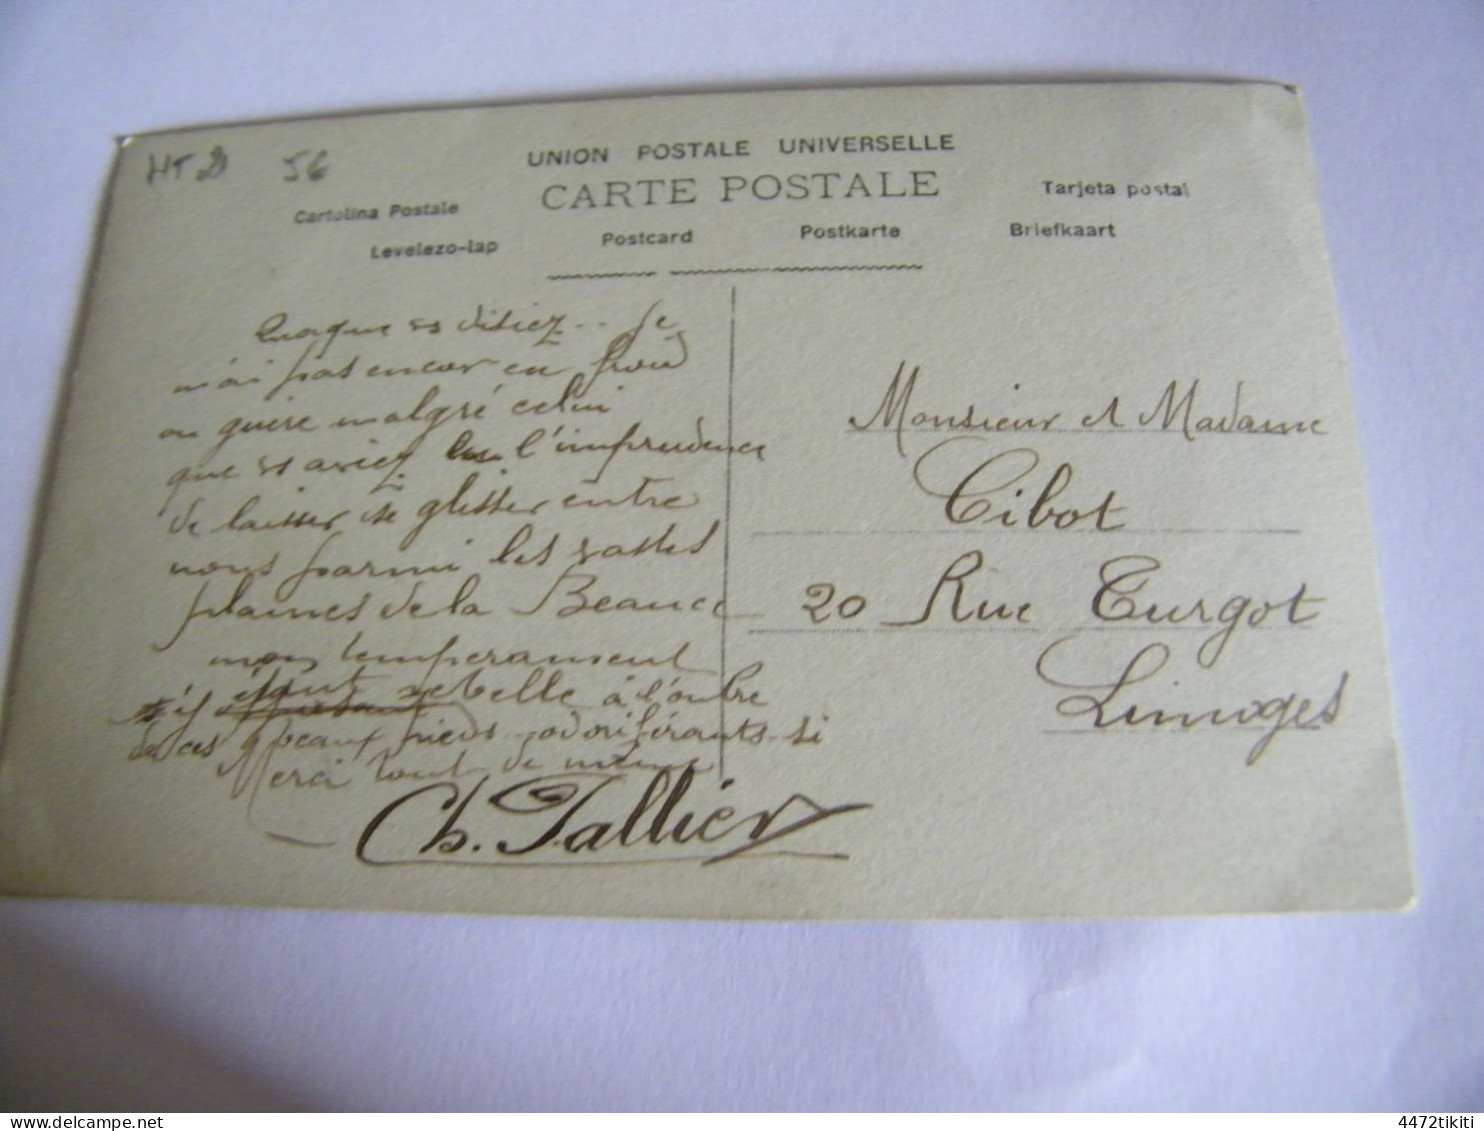 HTD 56
UNION POSTALE UNIVERSELLE
CARTE POSTALE
Cartolina Postale
Tarjeta postal
Levelezo-lap
Postcard
Postkarte
Briefkaart
quoique vs disiez... Je
n'ai pas encor eu froid
ou guère malgré celui
que vs aviez eu l'imprudence
de laisser se glisser entre
nous parmi les vastes
plaines de la Beauce
mon temperament
étant rebelle à l'ombre
de ces 4 beaux pieds odoriférants si
Merci tout de même
Ch. Tallier
Monsieur et Madame
Cibot
20 Rue Turgot
Limoges
4472tikiti